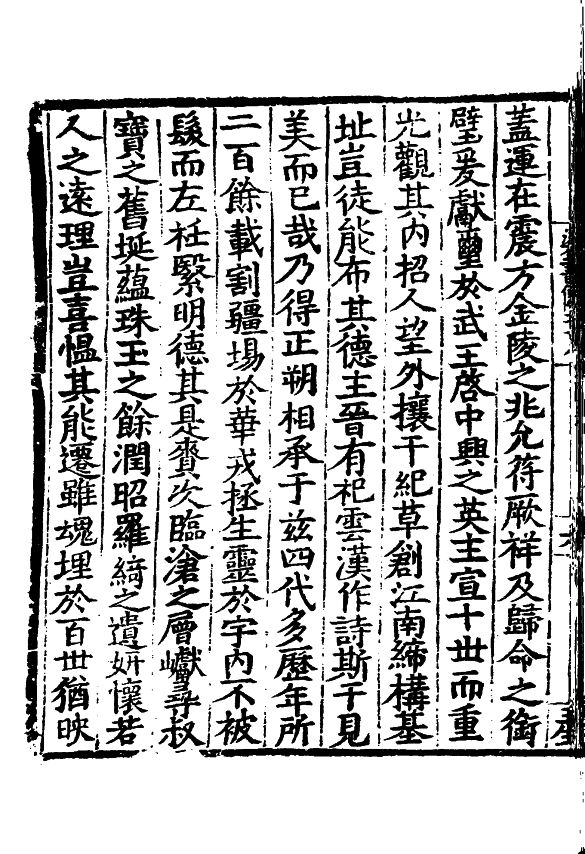 蓋運在震方金陵之兆允符厥祥及歸命之銜
璧爰獻璽於武王啓中興之英主宣十世而重
光觀其内招人望外攘干紀草創江南締構基
址豈徒能布其德主晉有祀雲漢作詩斯干見
美而已哉乃得正朔相承于兹四代多歷年所
二百餘載割疆埸於華戎拯生靈於宇内不被
髮而左衽緊明德其是賚次臨滄之層巘尋叔
寶之舊埏蘊珠玉之餘潤昭羅綺之遺妍懷若
人之遠理豈喜愠其能遷雖魂埋於百世猶映